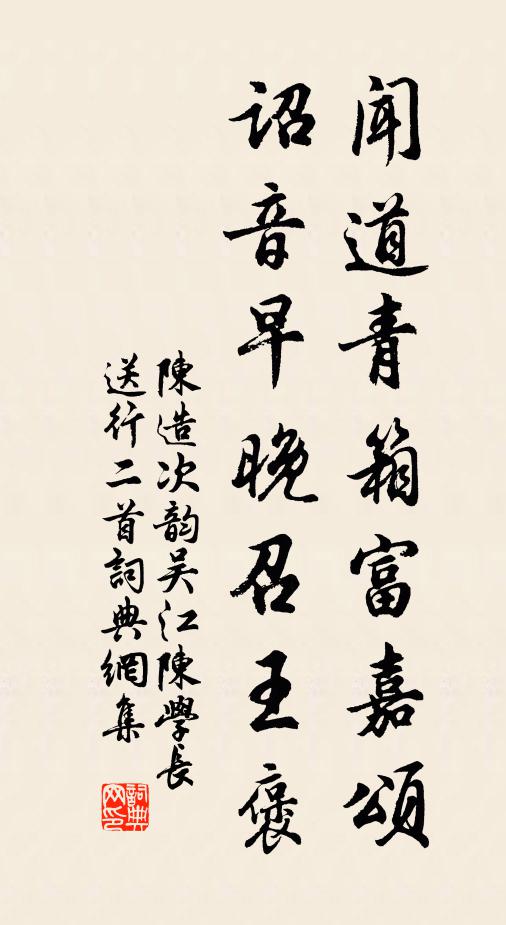 闻道青箱富嘉頌
詔音早晚召王褒
陳造次韵吴江陳學長
送行二首詞典網集
詞典
网印